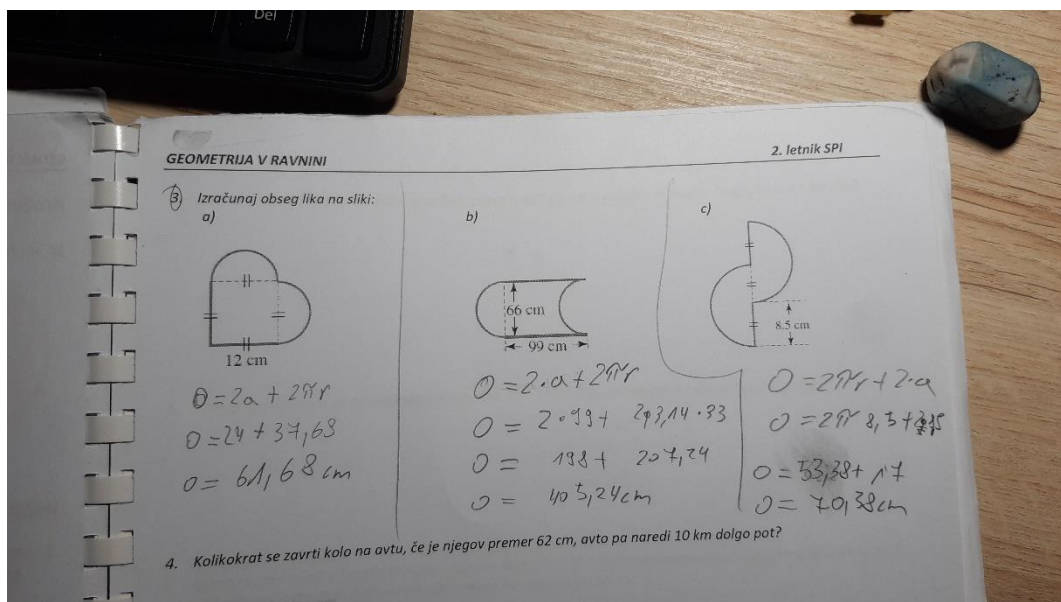 Del
GEOMETRIJA V RAVNINI
2. letnik SPI
3 Izračunaj obseg lika na sliki:
a)
b)
c)
12 cm
66 cm
99 cm
8.5 cm
O = 2a + 2πr
O = 24 + 37,68
O = 61,68 cm
O = 2·a + 2πr
O = 2·99 + 2·3,14·33
O = 198 + 207,24
O = 405,24 cm
O = 2πr + 2·a
O = 2πr 8,5 +
O = 53,38 + 17
O = 70,38 cm
4. Kolikokrat se zavrti kolo na avtu, če je njegov premer 62 cm, avto pa naredi 10 km dolgo pot?